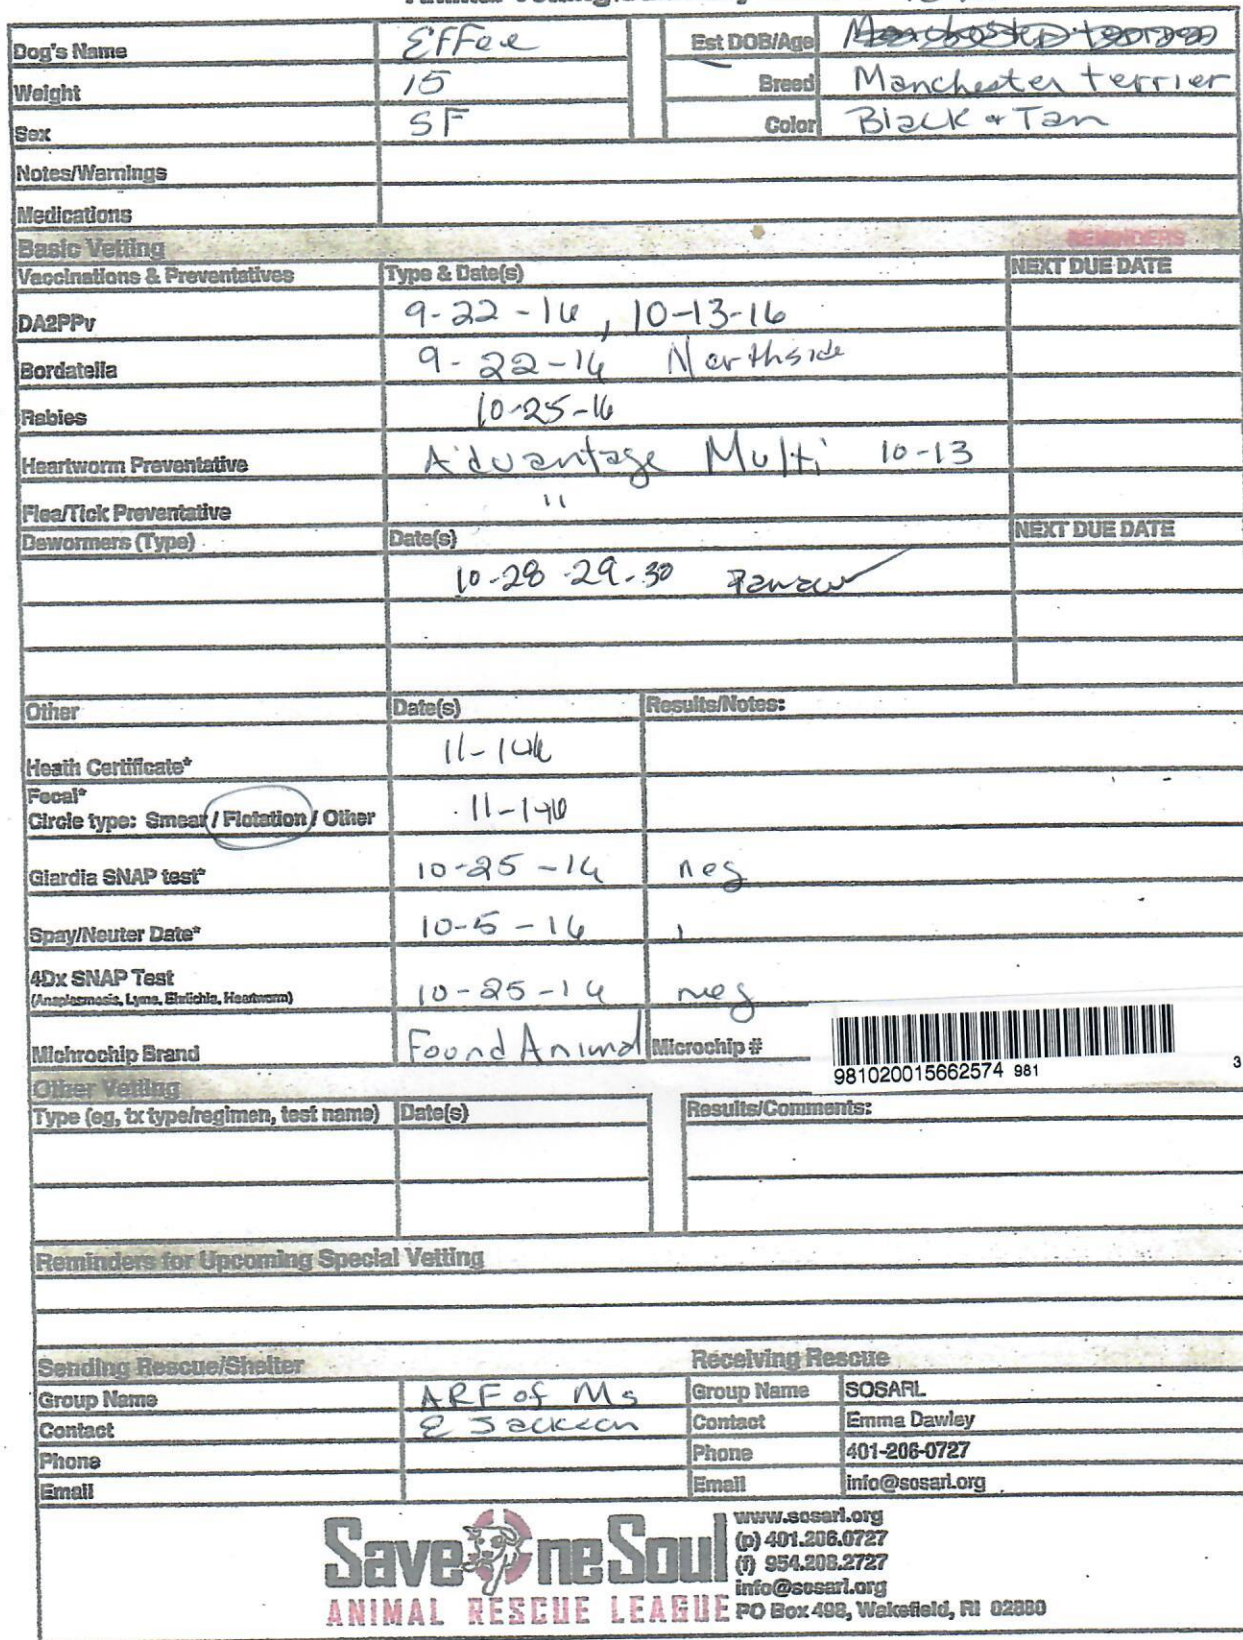 Dog's Name Effee Est DOB/Age
Weight 15 Breed Manchester terrier
Sex SF Color Black & Tan
Notes/Warnings
Medications
Basic Vetting REMINDERS
Vaccinations & Preventatives Type & Date(s) NEXT DUE DATE
DA2PPv 9-22-16, 10-13-16
Bordatella 9-22-16 Northside
Rabies 10-25-16
Heartworm Preventative Advantage Multi 10-13
Flea/Tick Preventative "
Dewormers (Type) Date(s) NEXT DUE DATE
10-28-29-30
Other Date(s) Results/Notes:
Heath Certificate*
Fecal*
Circle type: Smear / Flotation / Other
Giardia SNAP test* 10-25-16 neg
Spay/Neuter Date* 10-5-16
4Dx SNAP Test
(Anaplasmosis, Lyme, Ehrlichia, Heartworm) 10-25-16 neg
Michrochip Brand Found Animal Microchip #
981020015662574 981 3
Other Vetting
Type (eg, tx type/regimen, test name) Date(s) Results/Comments:
Reminders for Upcoming Special Vetting
Sending Rescue/Shelter Receiving Rescue
Group Name ARF of Ms Group Name SOSARL
Contact E Jackson Contact Emma Dawley
Phone Phone 401-206-0727
Email Email info@sosarl.org
Save One Soul
ANIMAL RESCUE LEAGUE
www.sosarl.org
(p) 401.206.0727
(f) 954.208.2727
info@sosarl.org
PO Box 498, Wakefield, RI 02880